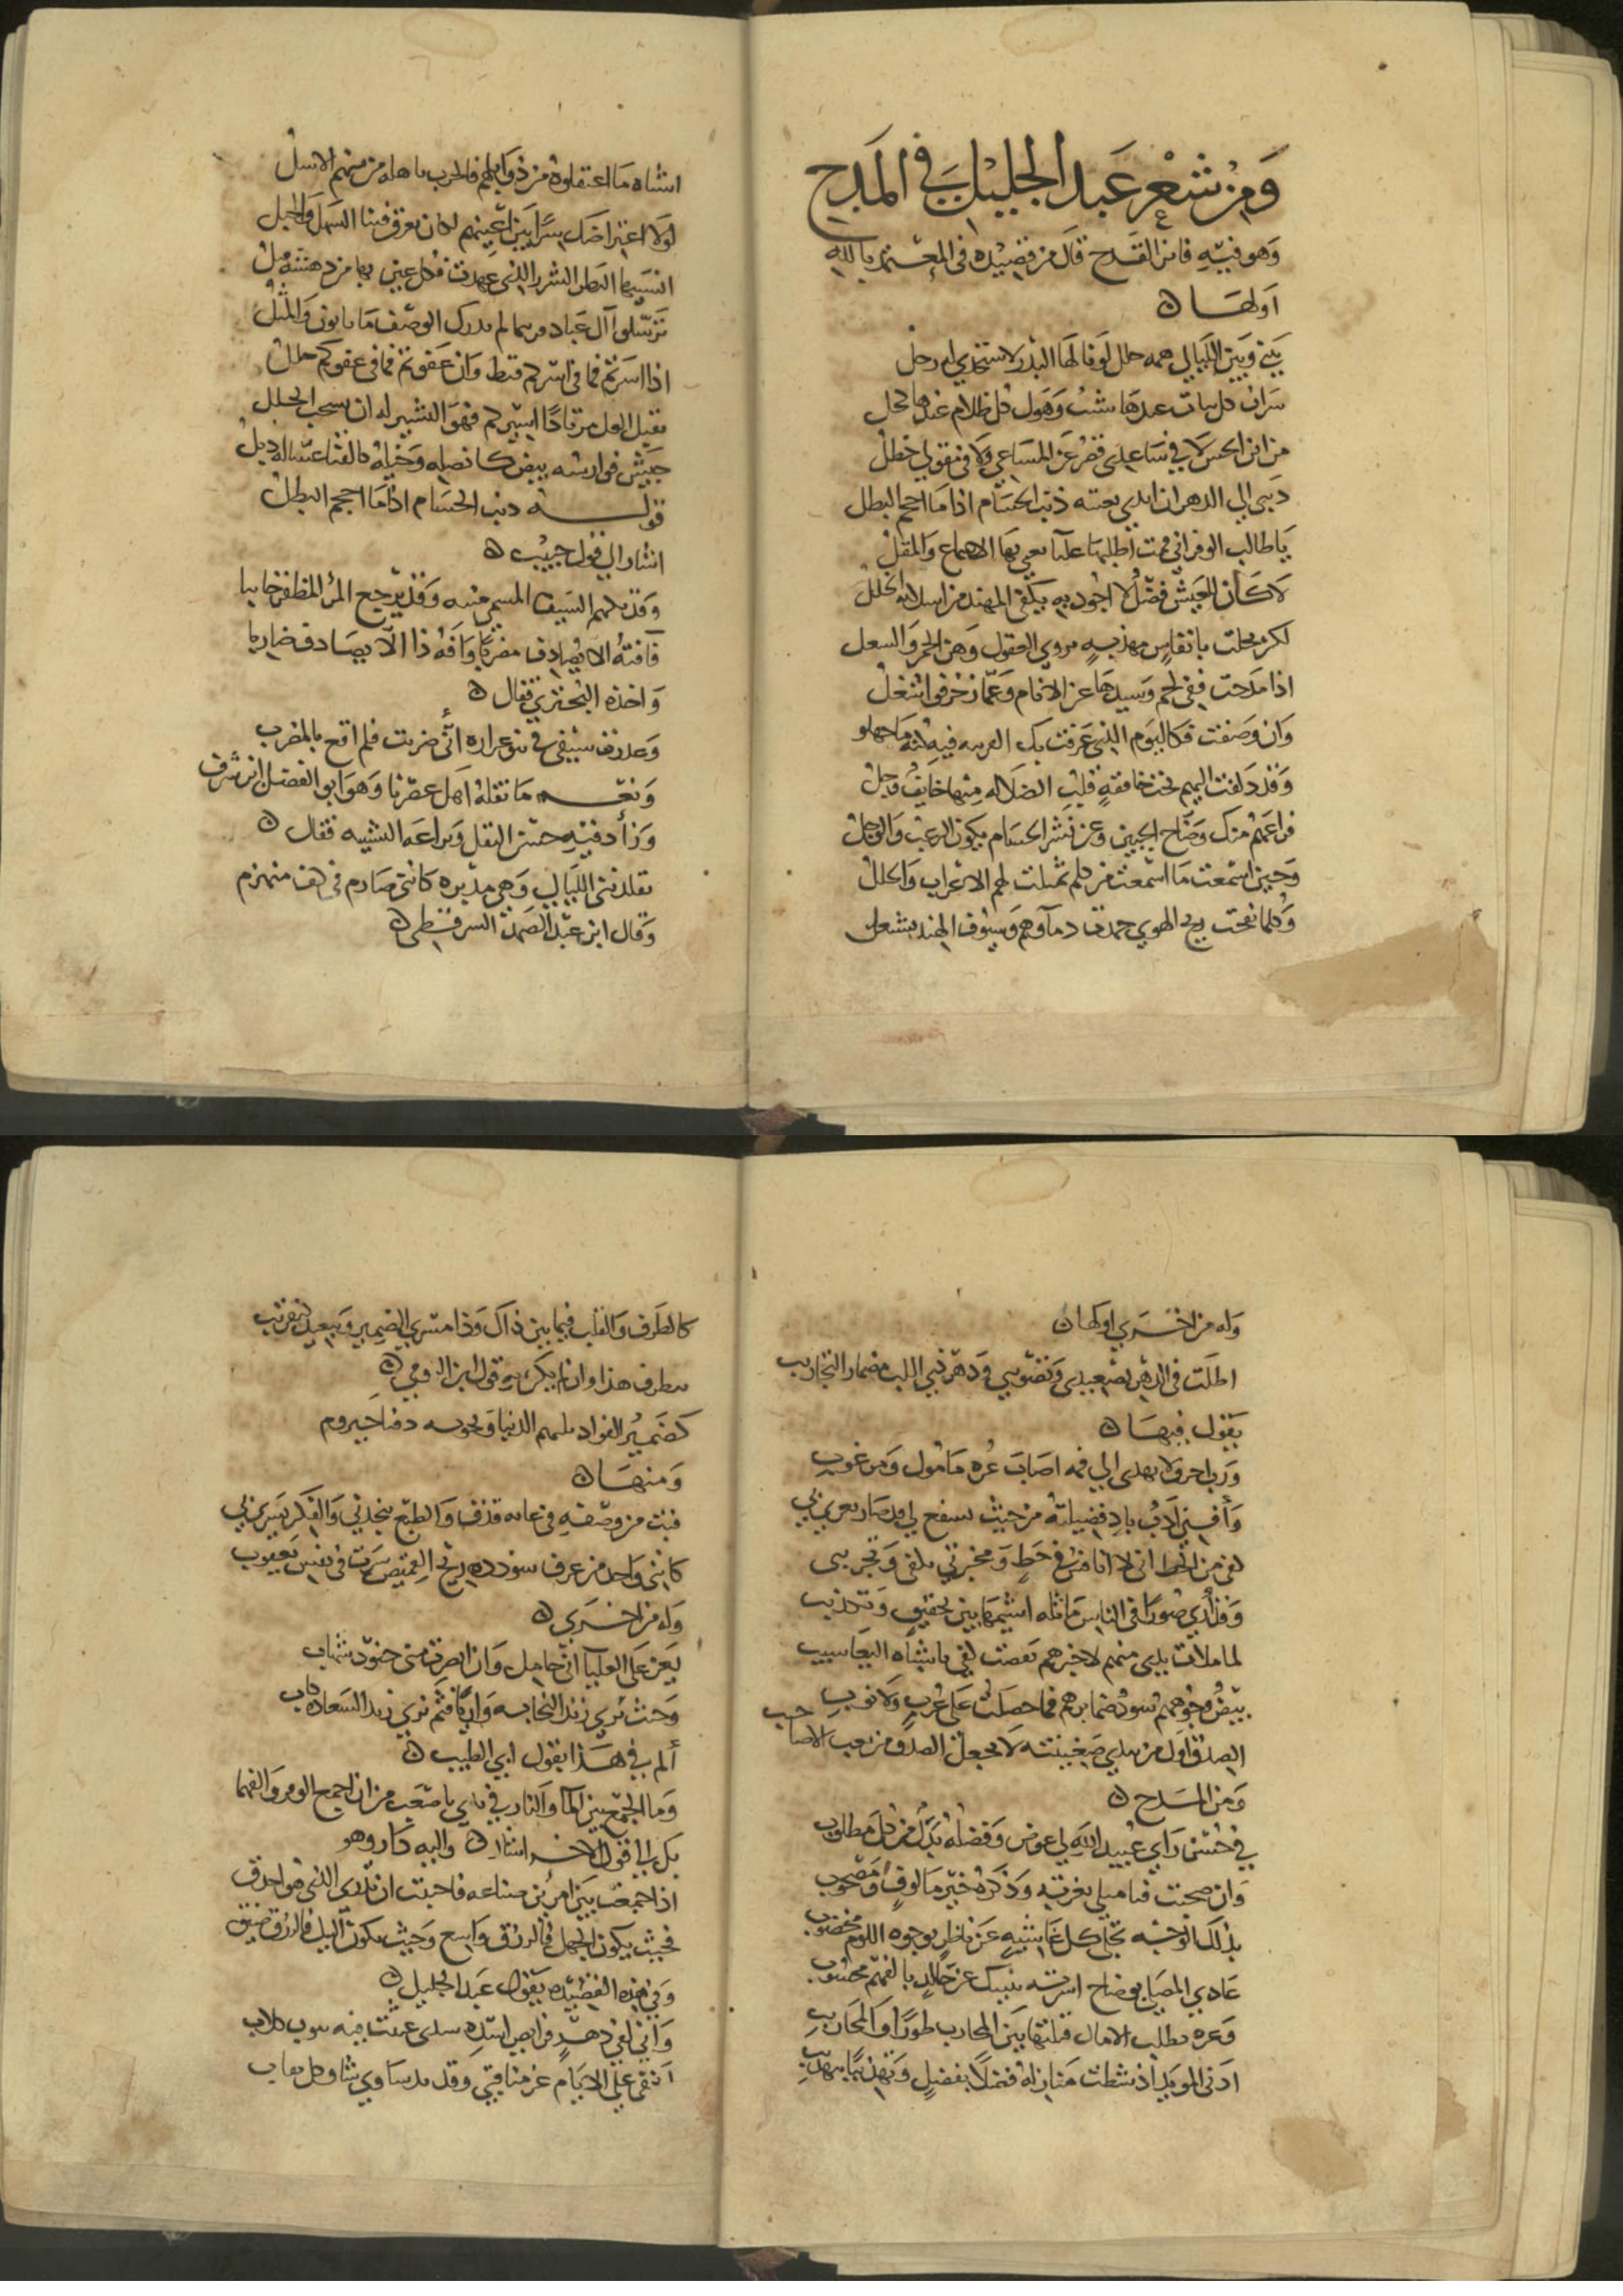 وَمِنْ شعْر عَبد الجَليْل في المَدح
وَهو فيْهِ فائز القدح قالَ من قصيْدة في المعْتمد بالله
اَولهَا ن
بَيني وَبَين الليَالي همه جلل لَو نالهَا البَدر لاستخذي له زحل
سَراب كل يباب عندهَا شنب وَهول كل ظلام عندها كحل
من اين ابخس لا في سَاعِدي قصر عَن المسَاعي وَلا في مقولي خطل
ذنبي الى الدهر ان ابدي تعنته ذنب الحسَام اذا مَا احجم البطل
يَا طالب الوفر اني قمت اطلبهَا عليا تعيى بهَا الاسماع وَالمقل
لا كَان للعَيش فضْل لا اجود به يكفي المهند من اسلابه الخلل
لكن بخلت بانفاسٍ مهذبةٍ تروي العقول وَهن الجمر وَالشعل
اذا مَدحت ففي لخم وَسيدهَا عن الانام وَعمّا زخرفوا شغل
وَان وَصفت فكاليوم الذي عَرفت بك الفرنجة فيهِ كنه مَا جهلو
وَقد دَلفت اليهم تحت خافقةٍ قلب الضلالة مِنها خايفٌ وَجل
فراعَهُم منك وَضّاح الجبين وَعن نشر الحسَام يكون الرعب وَالوجل
وَحين اسْمعت مَا اسْمعت من كلم تمثلت لهم الاعراب وَالحلل
وَكلما نفحت ريح الهوي جمدت دماؤهم وَسيُوف الهند تشتعل
اشباه مَا اعتقلوه من ذوَابلهم فالحرب جاهلة من منهم الاسل
لوَلا اعترَاضك سَدًّا بَين اعينهم لكان يغرق فينا السَهل وَالجبل
انسَيتها النظر الشزر الذي عهدت فكل عين بها من دهشةٍ قبل
تزيّلوا آل عَباد فربما لم يدرك الوصف مَا ياتون وَالمثل
اذا اسَرتم فما في اسْركم قنط وَان عَفوتم فما في عفوكم خلل
يقبل الغل مرتادًا اسيركم فهوَ البشير له ان يسحب الحلل
جَيش فوارسه بيض كانصله وَخيله كالقنا عسّاله ذبل
قولــه ذنب الحسَام اذا مَا احجم البطل
اشار الى قول حبيْب ن
وَقد يكهم السَيف المسمي منيه وَقد يرْجع المرْ المظفر خايبا
فآفته الا يُصادف مضربًا وَآفةُ ذا الّا يصَادف ضاربا
وَاخذه البحتري فقال ن
وَعذرت سَيفي في نبوّ غراره انّي ضربت فلم اقع بالمضرب
وَتغــه مَا نقله اَهل عصْرنا وَهوَ ابو الفضل ابن شرف
وَزادَ فيهِ حسْن النقل وَبراعَة التشبيه فقال ن
تقلدتني الليَالي وَهي مدْبرة كانني صَارم في كف منهزم
وَقال ابن عَبْد الصَمد السرقسْطي ن
وَله من اخــري اولهَا ن
اطلَت في الدهر تصْعِيدي وَتصْويبي وَدهْر ذي اللب مضمار التجاريب
يَقول فيهَا ن
وَرب اخرق لا يهدى الي فمه اصَابَ غُرة مَامول وَمرغوب
وَآفتي اَدَبٌ بادٍ فضيلته من حيث يشفع لي قد صَار يغري بي
كفى من الحظ اني لا انافس في حَظٍ وَمخبرتي تلقى وَتجري بي
وَقد اُري صُورًا في الناس مَاثلة اشيمهَا بَين تحقيق وَتكذيب
لما ملات يدي منهم لاخبرهم نفضت كفي باشباه اليعَاسيب
بيْضٌ وجُوههم سُودٌ ضمايرهم فما حصَلت عَلى غربٍ وَلا نوب
الصدق اوَل من يبدي ضَغينته لا يجعل الصدق من بعض الاصاحيب
وَمن المَــدح ن
في حُسْن رَاي عُبيد اللهِ لي عوض وَفضلهُ بَدَل من كل مَطلوب
وَان صَحبت فتاميلي بغرته وَذكرهُ خيْر مَالوفٍ وَمصْحوب
بذلك الوَجْه تجلى كل غَاشيةٍ عَن ناظرٍ بوجوه اللوم مخضوب
عَادي المحيّا بوضاح اسرته ينبيك عَن خالدٍ بالفهم محسوب
وَغرة تطلب الامال قبلتها بَين المحارب طورًا وَالمحاريب
ادني المويد اذ شطت منازله فضلا بفضلٍ وَتهذيبًا بتهذيب
كالطَرف وَالقلب فيما بَين ذاك وَذا مسْري الضمير وَتبعيد كتقريب
ينظر في هذا وان لم يكن بهِ قول ابن الرومي ن
كضَمير الفواد يلتهم الدنيا وَتحويه دفتا حَيزوم
وَمنهَا ن
فبت من وصْفهِ في غايةٍ قذفٍ وَالطبع ينجدني وَالفكر يَسري بي
كانني وَاجد من عرف سودده ريح القميص سَرت في نفس يَعقوب
وَله من اخــري ن
يَعز عَلى العليآ اني خامل وَان ابصرت مني خمُود شهاب
وَحيث تري زند النجابة وَاريًا فثم تري زند السَعادة كاب
ألمّ في هَــذا بقول ابي الطيب ن
وَما الجَمْع بَين المآ وَالنار في يدي باصْعَب من ان اجمع الومر وَالفهما
بل الي قول الاخــر اشار ن واليه دَار وهو
اذا جمعت بَين امرئين صناعة فاحببت ان تدري الذي هو احذق
فحيث يكون الجهل فالرزق وَاسع وَحيث يكون النبل فالرزق ضيق
وَفي هَذه القصيْدة يَقول عَبد الجليل ن
وَاني لفي دَهْرٍ فرايس اسْده سدى عبثت فيه نيوب كلاب
اَتنقى عَلي الايّام غر مناقبي وَقد بذ سَاوي شاو كل نقاب